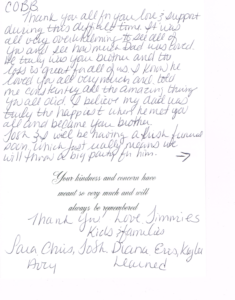 CDBB
Thank you all for your love & support
during this difficult time. It was
all very overwhelming to see all of
you and see how much Dad was loved.
He truly was your brother and the
loss is great for all of us. I know he
loved you all very much and told
me constantly all the amazing things
you all did. I believe my dad was
truly the happiest when he met you
all and became your brother.
Josh & I will be having a funeral
soon, which just really means we
will throw a big party for him. →
Your kindness and concern have
meant so very much and will
always be remembered
Thank you Love Jimmies
Kids & families
Sara Chris, Josh Diana Eric, Kayla
Avry